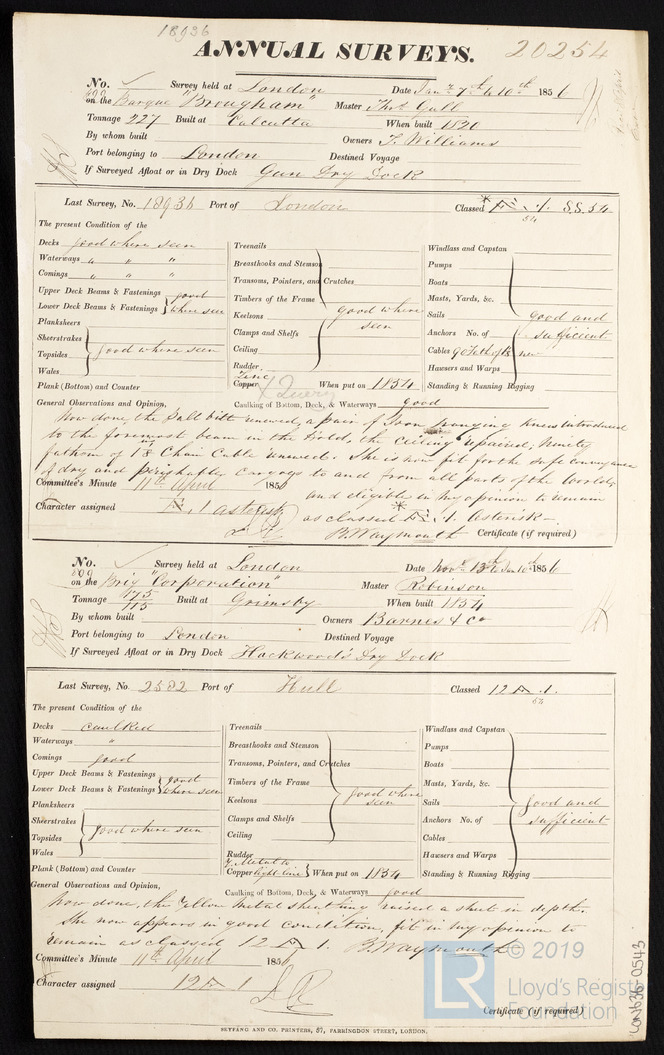 18936
ANNUAL SURVEYS.
20254
No. Survey held at London Date Jany 7th & 10th 1856
on the Barque "Brougham" Master Thos. Gull
Tonnage 227 Built at Calcutta When built 1820
By whom built Owners T. Williams
Port belonging to London Destined Voyage
If Surveyed Afloat or in Dry Dock Gun Dry Dock
Last Survey, No. 18936 Port of London Classed * Æ 1. S.S. 54
54
The present Condition of the
Decks good where seen
Waterways " " "
Comings " " "
Upper Deck Beams & Fastenings good
Lower Deck Beams & Fastenings where seen
Planksheers
Sheerstrakes
Topsides good where seen
Wales
Plank (Bottom) and Counter
Treenails
Breasthooks and Stemson
Transoms, Pointers, and Crutches
Timbers of the Frame
Keelsons good where seen
Clamps and Shelfs
Ceiling
Rudder
Zinc
Copper When put on 1854
Query
Windlass and Capstan
Pumps
Boats
Masts, Yards, &c.
Sails good and
Anchors No. of sufficient
Cables 90 fath of 18 new
Hawsers and Warps
Standing & Running Rigging
General Observations and Opinion, Caulking of Bottom, Deck, & Waterways good
Now done the Pall bitt renewed, a pair of Iron hanging knees introduced
to the foremost beam in the hold, the ceiling repaired, ninety
fathom of 1 8 Chain Cable renewed. She is now fit for the safe conveyance
of dry and perishable cargoes to and from all parts of the world,
Committee's Minute 11th April 1856 and eligible in my opinion to remain
Character assigned Æ 1 asterisk as classed * Æ 1. Asterisk
B. Waymouth Certificate (if required)
No. Survey held at London Date Novr 13th & Jan 10th 1856
on the Brig "Corporation" Master Robinson
Tonnage 175
115 Built at Grimsby When built 1854
By whom built Owners Barnes & Co
Port belonging to London Destined Voyage
If Surveyed Afloat or in Dry Dock Hackwood's Dry Dock
Last Survey, No. 2582 Port of Hull Classed 12 A 1.
54
The present Condition of the
Decks caulked
Waterways "
Comings good
Upper Deck Beams & Fastenings good
Lower Deck Beams & Fastenings where seen
Planksheers
Sheerstrakes
Topsides good where seen
Wales
Plank (Bottom) and Counter
Treenails
Breasthooks and Stemson
Transoms, Pointers, and Crutches
Timbers of the Frame
Keelsons good where seen
Clamps and Shelfs
Ceiling
Rudder
Y. Metal to
Copper light line When put on 1854
Windlass and Capstan
Pumps
Boats
Masts, Yards, &c.
Sails good and
Anchors No. of sufficient
Cables
Hawsers and Warps
Standing & Running Rigging
General Observations and Opinion, Caulking of Bottom, Deck, & Waterways good
Now done, the Yellow metal sheathing raised a sheet in depth.
She now appears in good condition, fit in my opinion to
remain as classed 12 A 1. B. Waymouth
Committee's Minute 11th April 1856
Character assigned 12 A 1
Certificate (if required)
© 2019
LR
Lloyd's Register
Foundation
LON636-0543
SEYFANG AND CO. PRINTERS, 57, FARRINGDON STREET, LONDON.